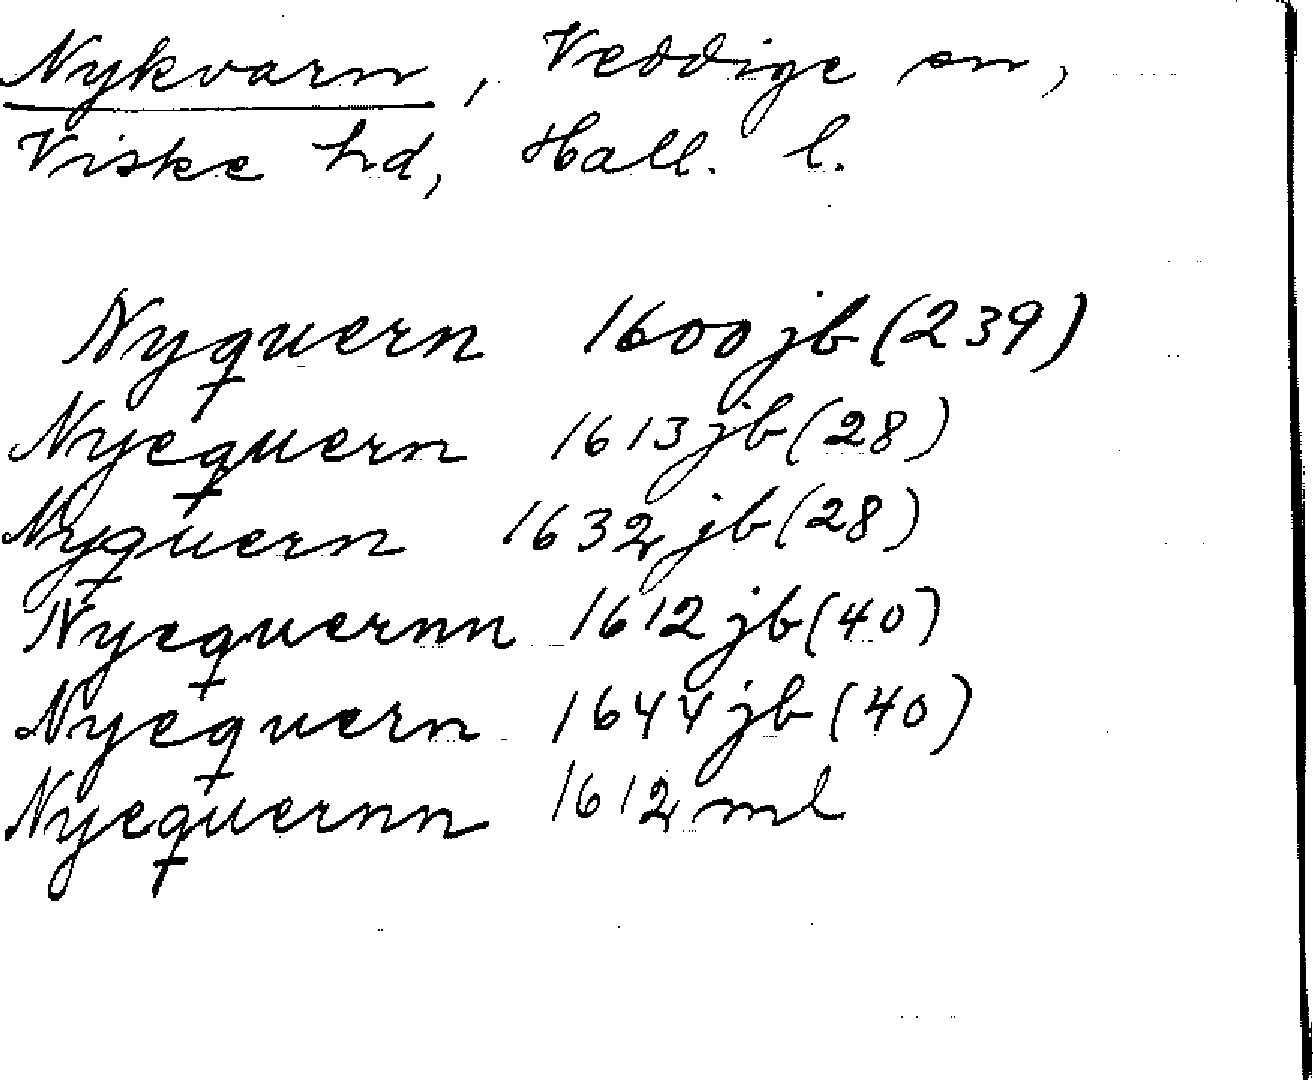 Nykvarn, Veddige sn,
Viske hd, Hall. l.
Nyquern 1600 jb (239)
Nyequern 1613 jb (28)
Nyquern 1632 jb (28)
Nyequernn 1612 jb (40)
Nyequern 1644 jb (40)
Nyequernn 1612 ml